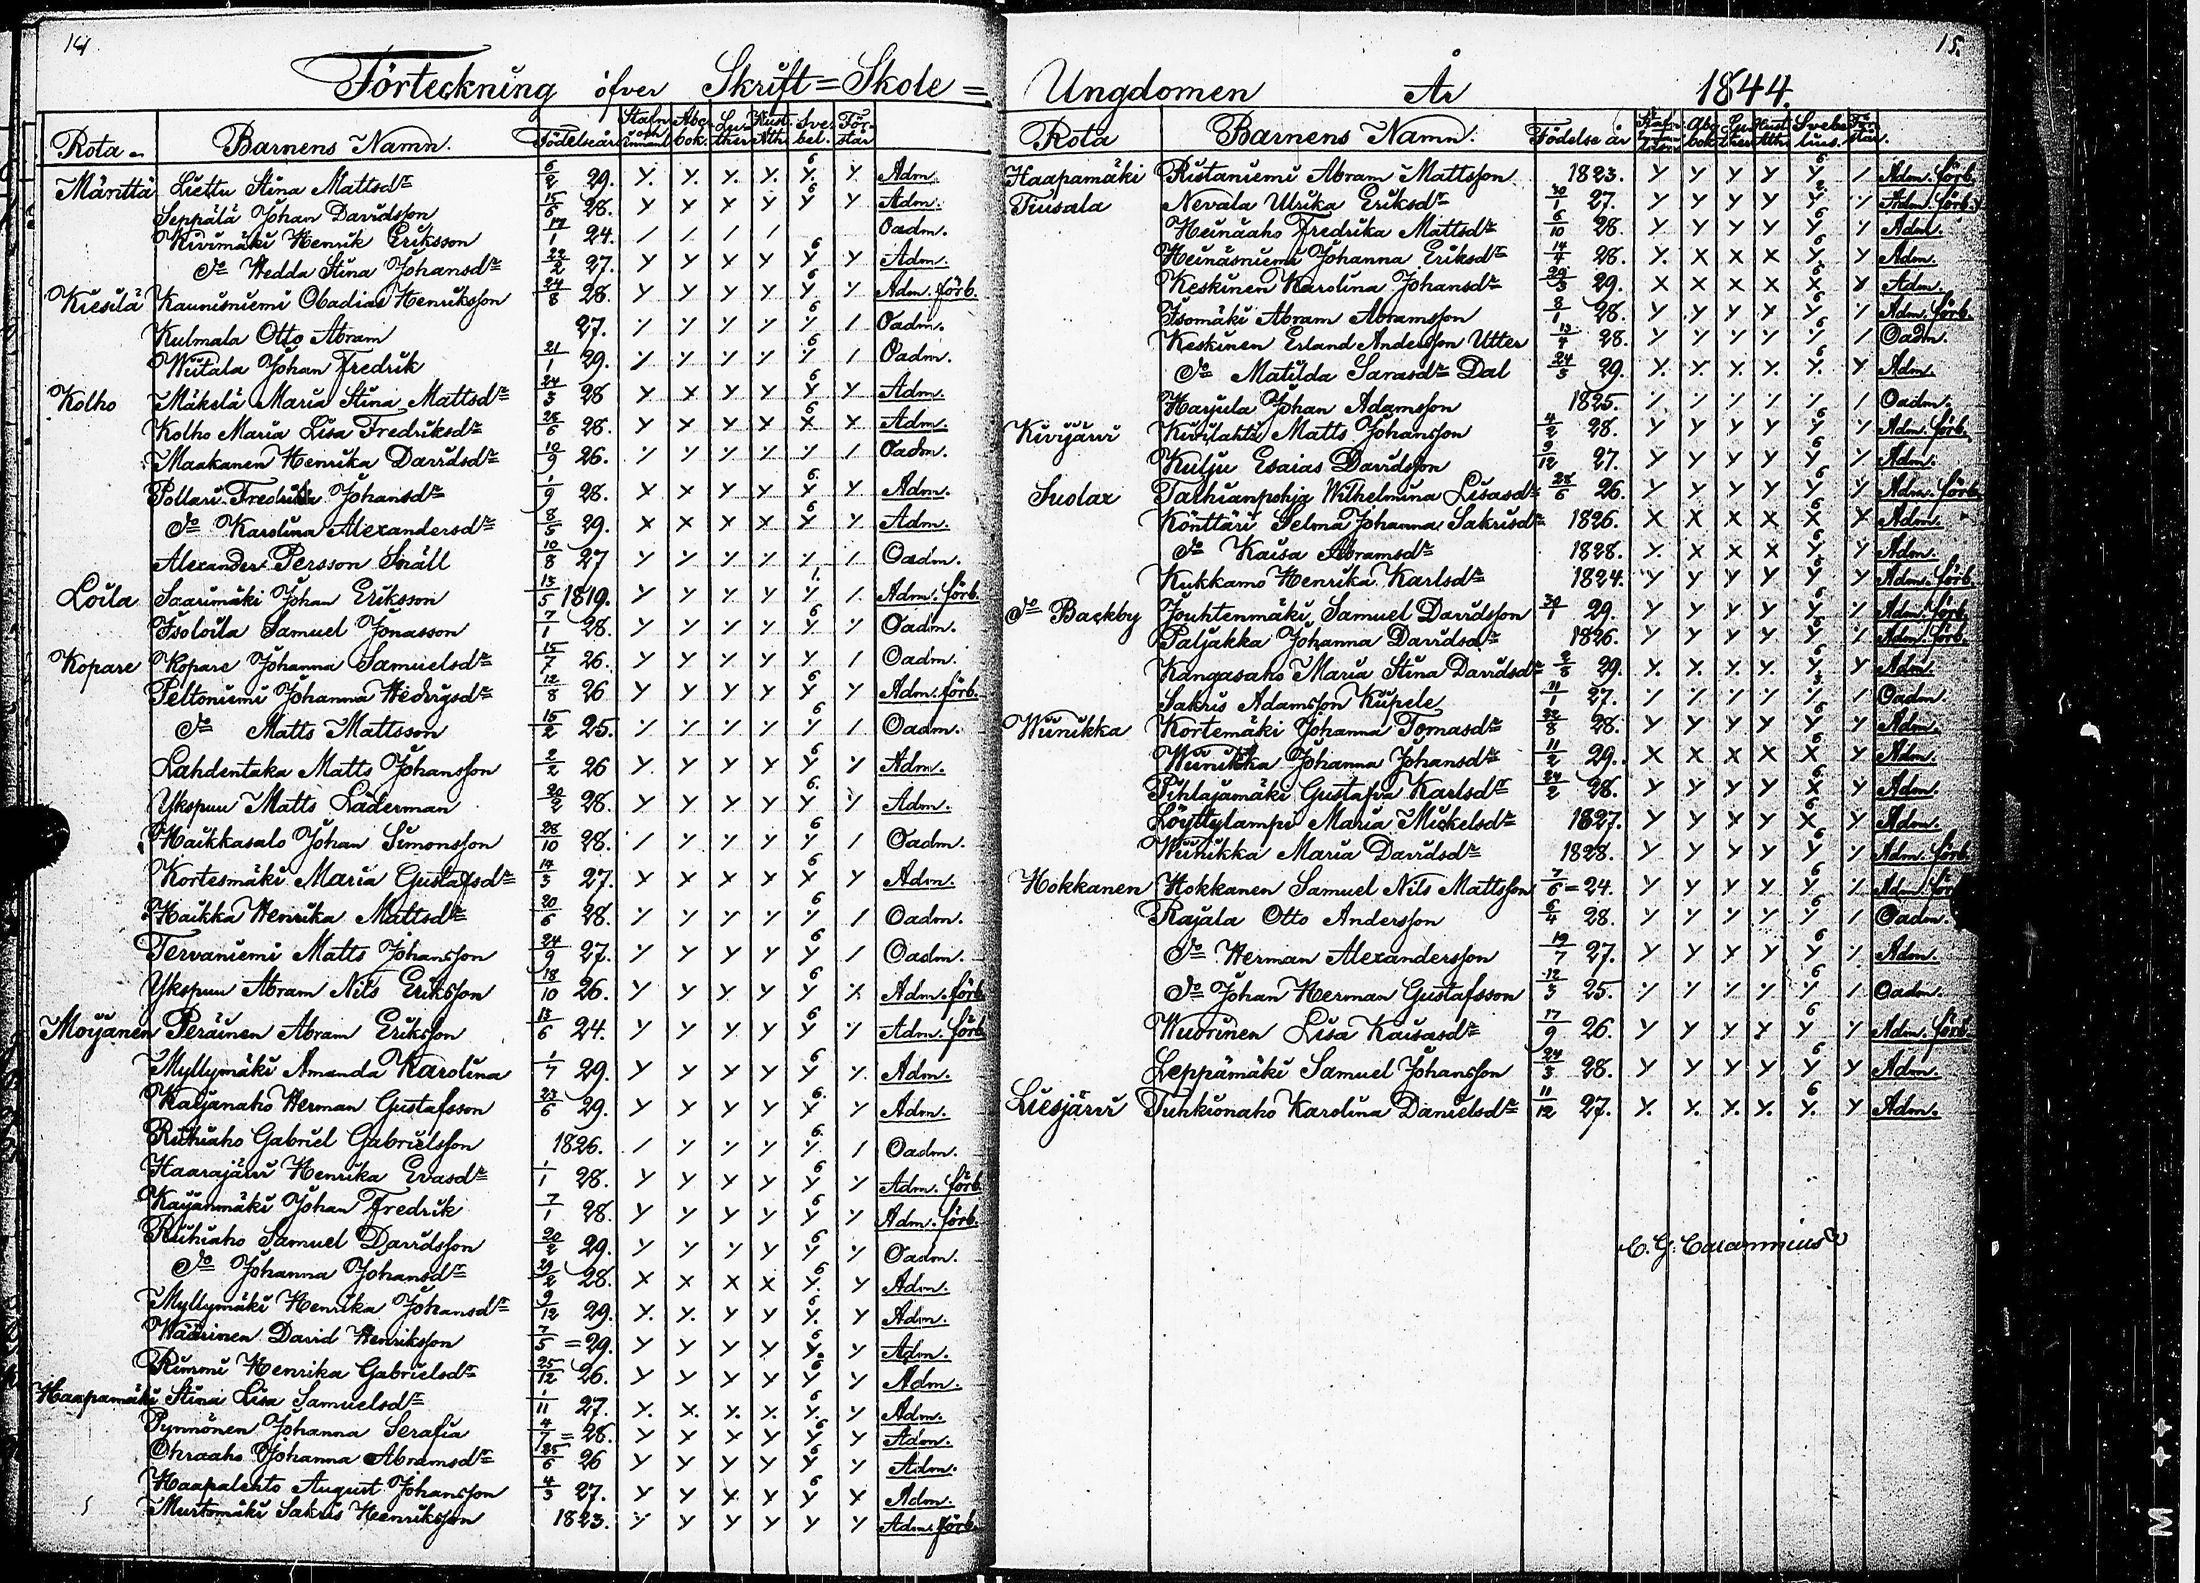 14.
Förteckning öfver Skrift=Skole=
Rota Barnens Namn. Födelseår Stafn och Innant Abc bok. Lu- ther Hust Ath Sve- bel. För- står
Märttä Liettu Stina Mattsdr 6/2 29. Adm.
Seppälä Johan Davidsson 15/6 28. Adm.
Kivimäki Henrik Eriksson 17/1 24. Oadm.
Do Hedda Stina Johansdr 22/2 27. Adm.
Kiesilä Kaunisniemi Obadias Henriksson 24/8 28. Adm. förb.
Kulmala Otto Abram 27. Oadm.
Wiitala Johan Fredrik 21/1 29. Oadm.
Kolho Mäkelä Maria Stina Mattsdr 24/3 28 Adm.
Kolho Maria Lisa Fredriksdr 28/6 28. Adm.
Maakanen Henrika Davidsdr 10/9 26. Oadm.
Pollari Fredrika Johansdr 1/9 28. Adm.
Do Karolina Alexandersdr 8/5 29. Adm.
Alexander Persson Snäll 10/8 27 Oadm.
Loila Saarimäki Johan Eriksson 13/5 1819. Adm. förb.
Isoloila Samuel Jonasson 7/1 28. Oadm.
Kopare Kopare Johanna Samuelsdr 15/7 26. Oadm.
Peltoniemi Johanna Hedvigsdr 12/8 26 Adm. förb.
Do Matts Mattsson 15/2 25. Oadm.
Lahdentaka Matts Johansson 2/2 26 Adm.
Ykspuu Matts Läderman 20/2 28. Adm.
Haikkasalo Johan Simonsson 28/10 28. Oadm.
Kortesmäki Maria Gustafsdr 14/3 27. Adm.
Haikka Henrika Mattsdr 20/6 28. Oadm.
Tervaniemi Matts Johansson 24/9 27. Oadm.
Ykspuu Abram Nils Eriksson 18/10 26. Adm. förb.
Möijänen Peräinen Abram Eriksson 13/6 24. Adm. förb.
Myllymäki Amanda Karolina 1/7 29. Adm.
Karjanaho Herman Gustafsson 23/6 29. Adm.
Riihiaho Gabriel Gabrielsson 1826. Oadm.
Haarajärvi Henrika Evasdr 1/1 28. Adm. förb.
Kaijanmäki Johan Fredrik 7/1 28. Adm. förb.
Riihiaho Samuel Davidsson 20/2 29. Oadm.
Do Johanna Johansdr 29/2 28. Adm.
Myllymäki Henrika Johansdr 9/12 29. Adm.
Wäärinen David Henriksson 7/5 = 29. Adm.
Rimmi Henrika Gabrielsdr 25/12 26. Adm.
Haapamäki Stina Lisa Samuelsdr 1/11 27. Adm.
Pynnönen Johanna Serafia 4/7 = 28. Adm.
Ohraaho Johanna Abramsdr 25/6 26 Adm.
Haapalehto August Johansson 4/3 27. Adm.
Murtomäki Sakris Henriksson 1823. Adm. förb.
15.
Ungdomen År 1844.
Rota Barnens Namn. Födelse år Abc bok Lu- ther Hust Ath Svebe- lius. För står.
Haapamäki Ristaniemi Abram Mattsson 1823. Adm. förb.
Tiusala Nevala Ulrika Eriksdr 30/1 27. Adm. förb.
Heinäaho Fredrika Mattsdr 6/10 28. Adm.
Heinäsniemi Johanna Eriksdr 14/4 28. Adm.
Keskinen Karolina Johansdr 29/3 29. Adm.
Isomäki Abram Abramsson 8/1 28. Adm. förb.
Keskinen Erland Andersson Utter 13/4 28. Oadm.
Do Matilda Sarasdr Dal 24/5 29. Adm.
Harjula Johan Adamsson 1825. Oadm.
Kivijärvi Kivilahti Matts Johansson 4/2 28. Adm. förb.
Kulju Esaias Davidsson 9/12 27. Adm.
Suolax Talhianpohja Wilhelmina Lisasdr 28/6 26. Adm. förb.
Könttäri Selma Johanna Sakrisdr 1826. Adm.
Do Kaisa Abramsdr 1828. Adm.
Kukkamo Henrika Karlsdr 1824. Adm. förb.
Do Backby Jouhtenmäki Samuel Davidsson 30/1 29. Adm. förb.
Paljakka Johanna Davidsdr 1826. Adm. förb.
Kangasaho Maria Stina Davidsdr 2/8 29. Adm.
Sakris Adamsson Küpele 11/1 27. Oadm.
Wiinikka Kortemäki Johanna Tomasdr 22/8 28. Adm.
Wiinikka Johanna Johansdr 11/2 29. Adm.
Pihlajamäki Gustafva Karlsdr 24/2 28. Adm.
Löyttylampi Maria Mickelsdr 1827. Adm.
Wiinikka Maria Davidsdr 1828. Adm. förb.
Hokkanen Hokkanen Samuel Nils Mattsson 7/6 = 24. Adm. förb
Rajala Otto Andersson 6/4 28. Oadm.
Do Herman Alexandersson 19/7 27. Adm.
Do Johan Herman Gustafsson 12/3 25. Oadm.
Wuorinen Lisa Kaisasdr 17/9 26. Adm. förb.
Leppämäki Samuel Johansson 24/3 28. Adm.
Liesjärvi Tuhkionaho Karolina Danielsdr 11/12 27. Adm.
C. G. Calamnius